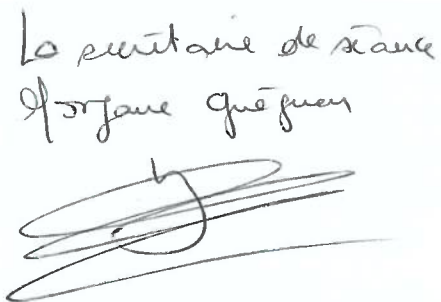 La secrétaire de séance
Morgane Guéguen